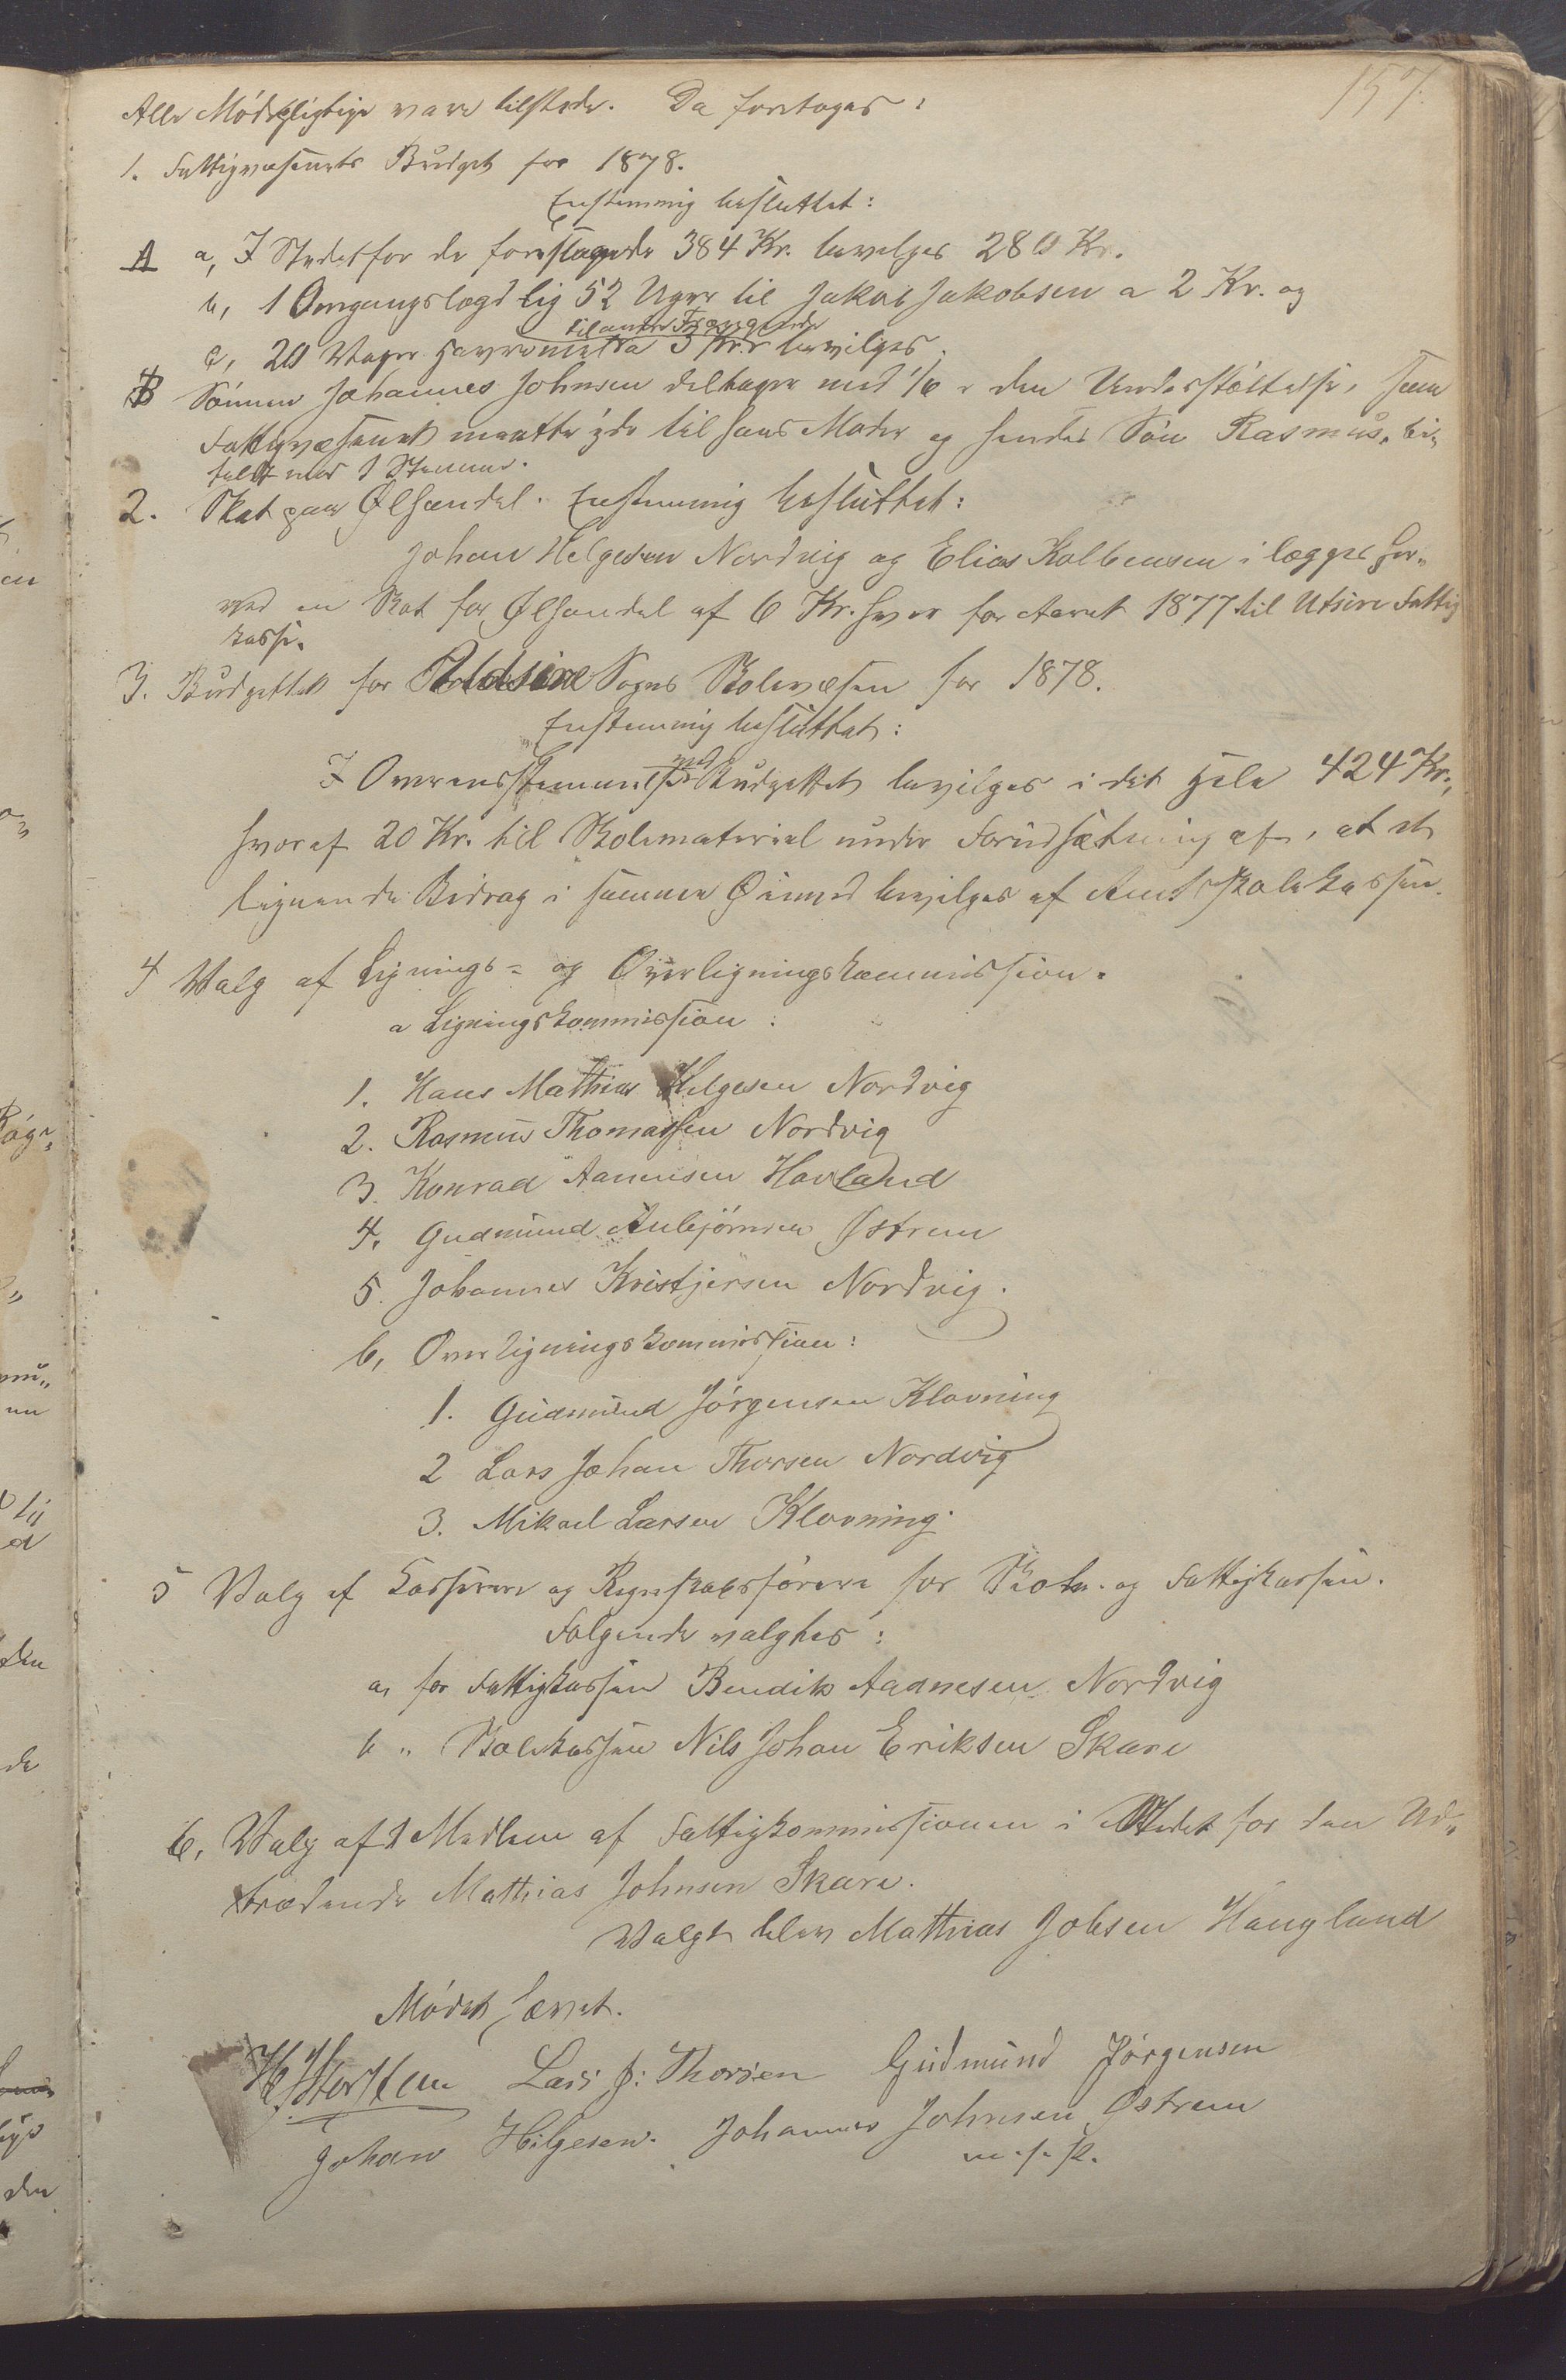 157.
Alle Mødepligtige vare tilstede. Da foretoges:
1. Fattigvæsenets Budget for 1878.
Enstemmig besluttet:
A a, I Stedetfor de foreslagede 384 Kr. bevilges 280 Kr.
b, 1 Omgangslægd lig 52 Uger til Jakob Jakobsen a 2 Kr. og
til andre Trængende
c, 20 Vager Havremel a 3 Kr. bevilges.
B Sønnen Johannes Johnsen deltager med 1/6 i den Understøttelse, som
Fattigvæsenet maatte yde til hans Moder og hendes Søn Rasmus, bi-
faldt med Stemmer.
2. Skat paa Ølhandel. Enstemmig besluttet:
Johan Helgesen Nordvig og Elias Kolbensen ilægges her-
ved en Skat for Ølhandel af 6 Kr. hver for Aaret 1877 til Utsire Fattig
kasse.
3. Budgettet for Udsire Sogns Skolevæsen for 1878.
Enstemmig besluttet:
I Overensstemmelse med Budgettet bevilges i det Hele 424 Kr.,
hvoraf 20 Kr. til Skolemateriel under Forudsætning af, at et
lignende Bidrag i samme Øiemed bevilges af Amtsskolekassen.
4 Valg af Lignings- og Overligningskommission.
a Ligningskommission:
1. Hans Mathias Helgesen Nordvig
2. Rasmus Thomassen Nordvig
3. Konrad Aanensen Hovland
4. Gudmund Anbjørnsen Østrem
5. Johannes Kristjersen Nordvig.
b, Overligningskommission:
1. Gudmund Jørgensen Klovning
2 Lars Johan Thorsen Nordvig
3. Mikael Larsen Klovning.
5 Valg af Kasserere og Regnskabsførere for Skole- og Fattigkassen.
Følgende valgtes:
a, for Fattigkassen Bendik Aadnesen Nordvig
b " Skolekassen Nils Johan Eriksen Skare
6, Valg af 1 Medlem af Fattigkommissionen i Stedet for den Ud-
trædende Mathias Johnsen Skare.
Valgt blev Mathias Jobsen Haugland
Mødet hævet.
Lars J: Thorsen Gudmund Jørgensen
Johan Helgesen. Johannes Johnsen Østrem
m. f. P.